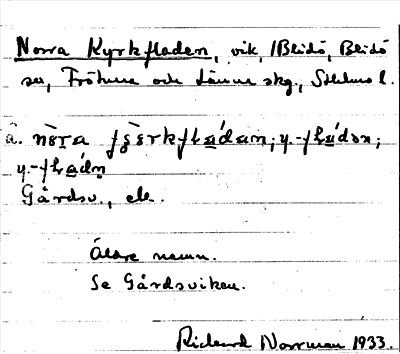 Norra Kyrkfladen, vik, /Blidö, Blidö
sn, Frötuna och Länna skg., Sthlms l.
å. nè̱ra fʒèrkfladan; y. -fládən;
y. -fládn̥
Gårdsv., ele.
Äldre namn.
Se Gårdsviken.
Rickard Norrman 1933.